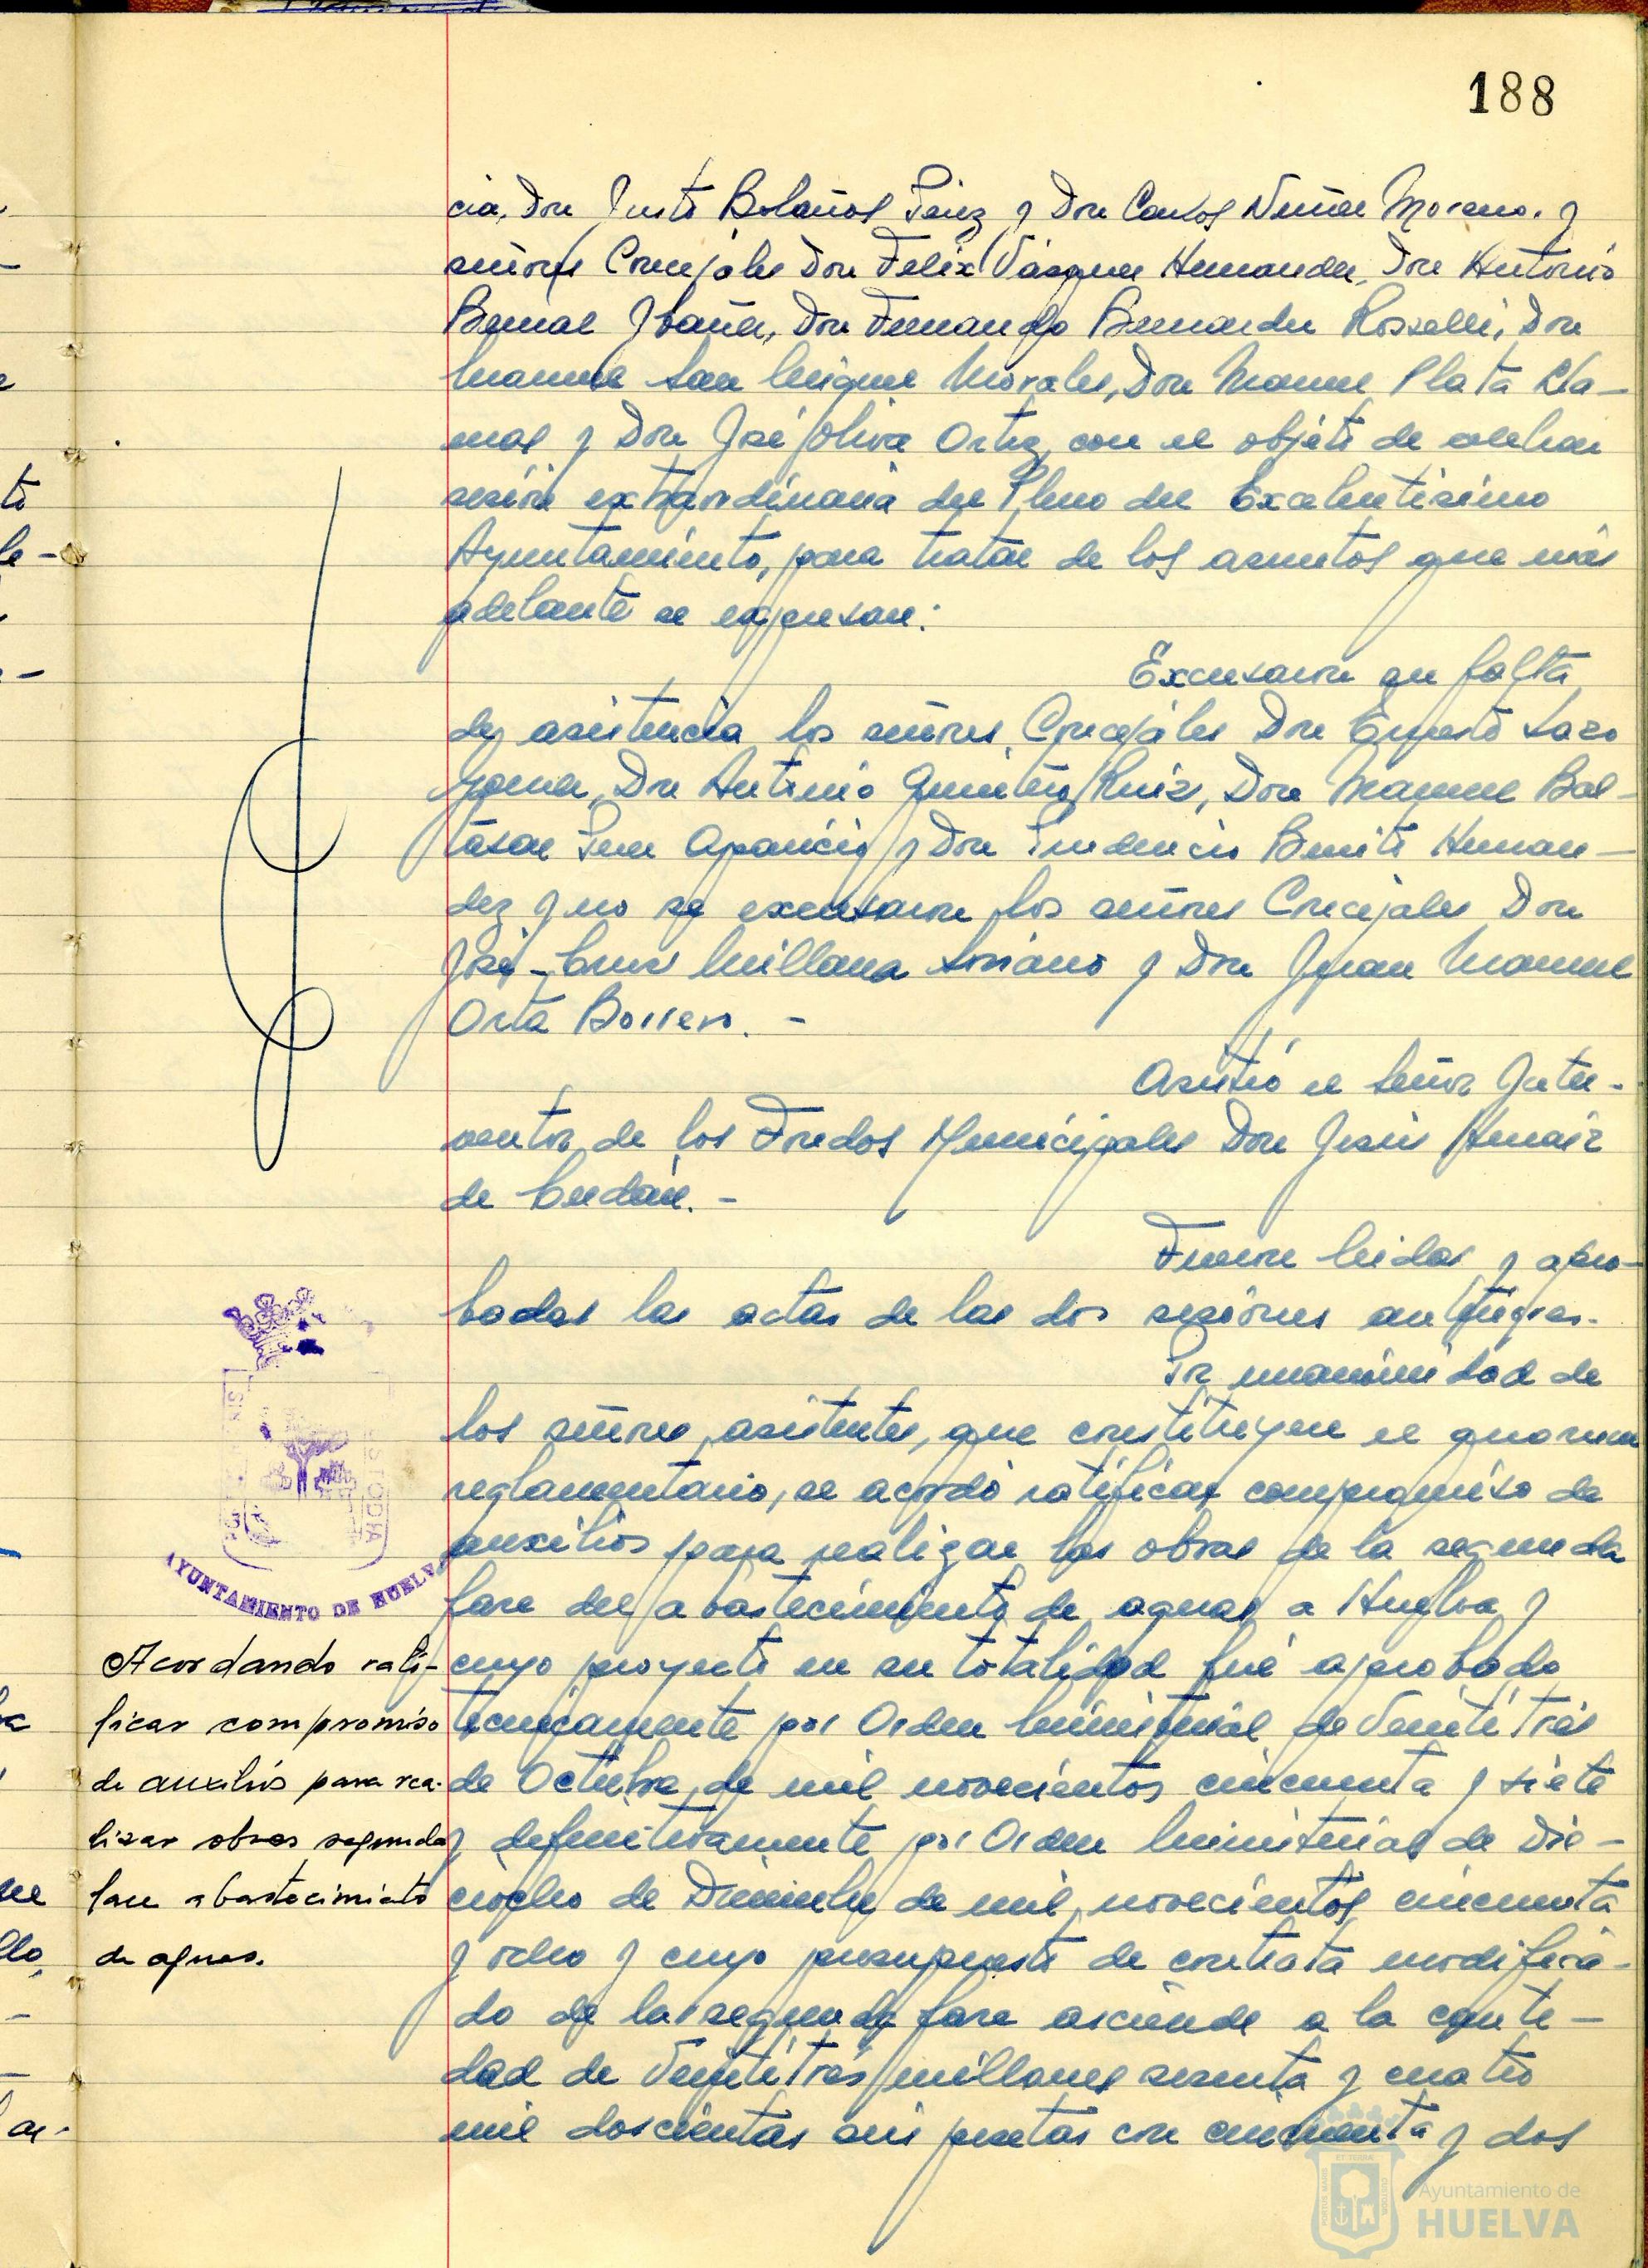 188
cia, Don Justo Bolaños Pérez y Don Carlos Núñez Moreno. y
señores Concejales Don Felix Vázquez Hernandez, Don Antonio
Bernal Ibañez, Don Fernando Bernardez Rosselli, Don
Manuel San Miguel Morales, Don Manuel Plata
y Don José Oliva Ortiz, con el objeto de celebrar
sesión extraordinaria del Pleno del Excelentísimo
Ayuntamiento, para tratar de los asuntos que más
adelante se expresan:
Excusaron su falta
de asistencia los señores Concejales Don Ernesto Lazo
Don Antonio Quintero Ruiz, Don Manuel Bal-
tasar Pérez Aparicio y Don Prudencio Benito Hernan-
dez y no se excusaron los señores Concejales Don
José-Cruz Millana Soriano y Don Juan Manuel
Orta Borrero. -
Asistió el Señor Inter-
ventor de los Fondos Municipales Don Jesús Arnaiz
de
Fueron leidas y apro-
badas las actas de las dos sesiones anteriores.
Por unanimidad de
los señores asistentes, que constituyen el quorum
reglamentario, se acordó ratificar compromiso de
auxilios para realizar las obras de la segunda
fase del abastecimiento de aguas a Huelva y
cuyo proyecto en su totalidad fué aprobado
tecnicamente por Orden Ministerial de Veintitrés
de Octubre de mil novecientos cincuenta y siete
y definitivamente por Orden Ministerial de Die-
ciocho de Diciembre de mil novecientos cincuenta
y ocho y cuyo presupuesto de contrata modifica-
do de la segunda fase asciende a la canti-
dad de Veintitrés millones sesenta y cuatro
mil doscientas seis pesetas con cincuenta y dos
AYUNTAMIENTO DE HUELVA
Acordando rati-
ficar compromiso
de auxilios para rea-
lizar obras segunda
fase abastecimiento
de aguas.
Ayuntamiento de
HUELVA